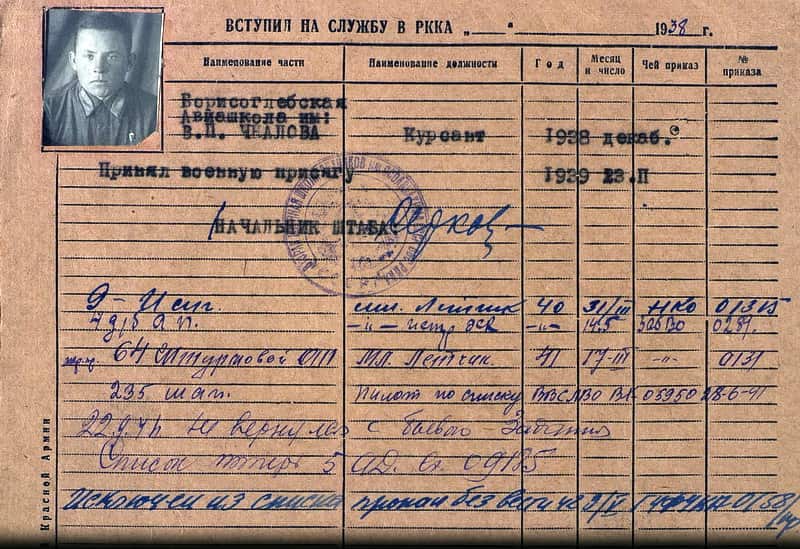 ВСТУПИЛ НА СЛУЖБУ В РККА „ " 1938 г.
Наименование части Наименование должности Год Месяц и число Чей приказ № приказа
Борисоглебская
Авиашкола им:
В.П. ЧКАЛОВА Курсант 1938 декаб.
Принял военную присягу 1939 23.П
НАЧАЛЬНИК ШТАБА
мл. Летчик 40 31/III НКО 01315
-"- -"- 14.5 ЗабВО
64 Штурмовой мл. Летчик 41 17-III -"- 0131
235 шап. Пилот по списку 05950 28-6-41
не вернулся с боевого Задания
Список потерь 5 АД. 09185
Исключен из списка пропал без вести 0158
Красной Армии